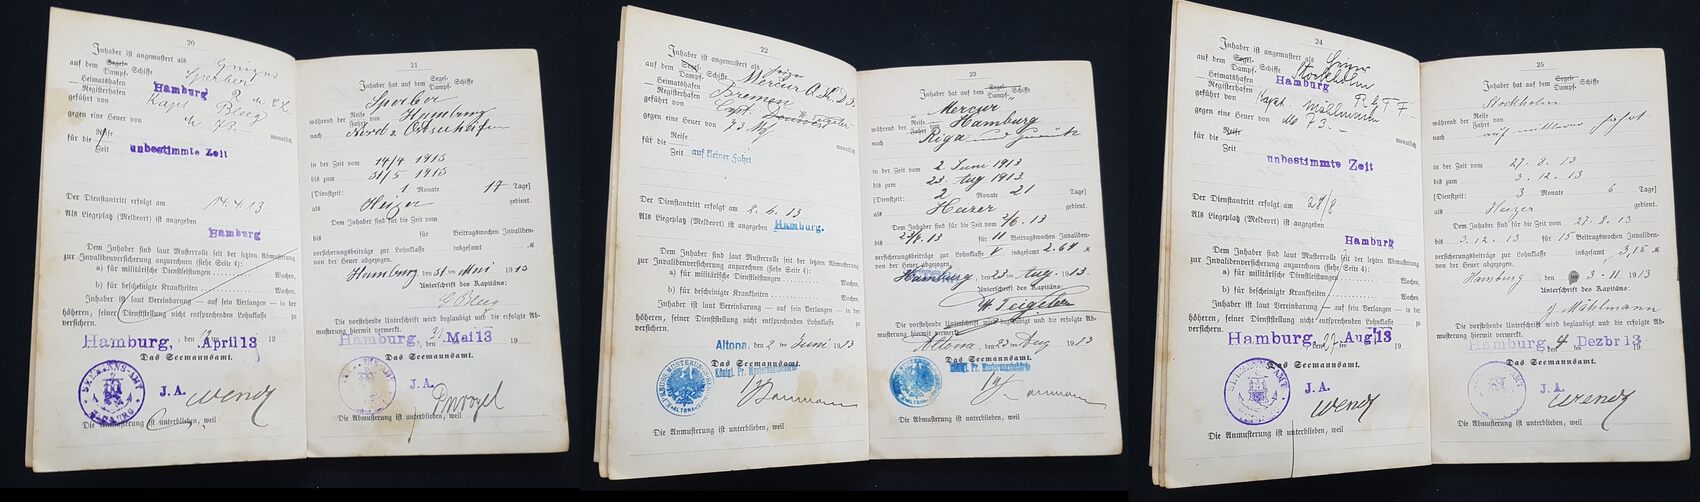 20
Inhaber ist angemustert als
auf dem Segel- Dampf- Schiffe Sperber
Heimatshafen Registerhafen Hamburg
geführt von Kapt. Bleeg
gegen eine Heuer von M 73.- monatlich
für die Reise Zeit unbestimmte Zeit
Der Dienstantritt erfolgt am 14.4.13
Als Liegeplatz (Meldeort) ist angegeben
Hamburg
Dem Inhaber sind laut Musterrolle seit der letzten Abmusterung
zur Invalidenversicherung anzurechnen (siehe Seite 4):
a) für militärische Dienstleistungen Wochen,
b) für bescheinigte Krankheiten Wochen.
Inhaber ist laut Vereinbarung — auf sein Verlangen — in der
höheren, seiner Dienststellung nicht entsprechenden Lohnklasse zu
versichern.
Hamburg, den 12 April 13 19
Das Seemannsamt.
SEEMANNS-AMT HAMBURG
J.A. Wendt
Die Anmusterung ist unterblieben, weil
21
Inhaber hat auf dem Segel- Dampf- Schiffe
Sperber
während der Reise Fahrt von Hamburg
nach Nord & Ostseehäfen
in der Zeit vom 14/4 1913
bis zum 31/5 1913
[Dienstzeit: 1 Monate 17 Tage]
als Heizer gedient.
Dem Inhaber sind für die Zeit vom
bis für Beitragswochen Invaliden-
versicherungsbeiträge zur Lohnklasse insgesamt M
von der Heuer abgezogen.
Hamburg den 31 ten Mai 1913
Unterschrift des Kapitäns:
Die vorstehende Unterschrift wird beglaubigt und die erfolgte Ab-
musterung hiermit vermerkt.
Hamburg, den 31 Mai 13 19
Das Seemannsamt.
J.A.
Die Abmusterung ist unterblieben, weil
22
Inhaber ist angemustert als Heizer
auf dem Segel- Dampf- Schiffe Mercur
Heimatshafen Registerhafen Bremen
geführt von Capt. W. Teigeler
gegen eine Heuer von 73 M monatlich
für die Reise Zeit auf kleiner Fahrt
Der Dienstantritt erfolgt am 2.6.13
Als Liegeplatz (Meldeort) ist angegeben Hamburg.
Dem Inhaber sind laut Musterrolle seit der letzten Abmusterung
zur Invalidenversicherung anzurechnen (siehe Seite 4):
a) für militärische Dienstleistungen Wochen,
b) für bescheinigte Krankheiten Wochen.
Inhaber ist laut Vereinbarung — auf sein Verlangen — in der
höheren, seiner Dienststellung nicht entsprechenden Lohnklasse zu
versichern.
Altona, den 2 Juni 1913
Das Seemannsamt.
Königl. Pr. Musterungsbehörde
Die Anmusterung ist unterblieben, weil
23
Inhaber hat auf dem Segel- Dampf- Schiffe
Mercur
während der Reise Fahrt von Hamburg
nach Riga und zurück
in der Zeit vom 2 Juni 1913
bis zum 23 Aug 1913
[Dienstzeit: 2 Monate 21 Tage]
als Heizer gedient.
Dem Inhaber sind für die Zeit vom 2/6. 13
bis 23/8. 13 für 11 Beitragswochen Invaliden-
versicherungsbeiträge zur Lohnklasse V insgesamt 2.64 M
von der Heuer abgezogen.
Hamburg, den 23 ten Aug. 1913.
Unterschrift des Kapitäns:
W. Teigeler
Die vorstehende Unterschrift wird beglaubigt und die erfolgte Ab-
musterung hiermit vermerkt.
Altona, den 23 ten Aug 1913
Das Seemannsamt.
Königl. Pr. Musterungsbehörde
Die Abmusterung ist unterblieben, weil
24
Inhaber ist angemustert als Heizer
auf dem Segel- Dampf- Schiffe Stockholm
Heimatshafen Registerhafen Hamburg
geführt von Kapt. Möhlmann
gegen eine Heuer von M 73.- monatlich
für die Reise Zeit
unbestimmte Zeit
Der Dienstantritt erfolgt am 27/8
Als Liegeplatz (Meldeort) ist angegeben
Hamburg
Dem Inhaber sind laut Musterrolle seit der letzten Abmusterung
zur Invalidenversicherung anzurechnen (siehe Seite 4):
a) für militärische Dienstleistungen Wochen,
b) für bescheinigte Krankheiten Wochen.
Inhaber ist laut Vereinbarung — auf sein Verlangen — in der
höheren, seiner Dienststellung nicht entsprechenden Lohnklasse zu
versichern.
Hamburg, den 27. Aug 13 19
Das Seemannsamt.
J.A. Wendt
Die Anmusterung ist unterblieben, weil
25
Inhaber hat auf dem Segel- Dampf- Schiffe
Stockholm
während der Reise Fahrt von
nach auf mittlerer Fahrt
in der Zeit vom 27. 8. 13
bis zum 3. 12. 13
[Dienstzeit: 3 Monate 6 Tage]
als Heizer gedient.
Dem Inhaber sind für die Zeit vom 27. 8. 13
bis 3. 12. 13 für 15 Beitragswochen Invaliden-
versicherungsbeiträge zur Lohnklasse insgesamt 3,15 M
von der Heuer abgezogen.
Hamburg, den 3. 11 1913
Unterschrift des Kapitäns:
J. Möhlmann
Die vorstehende Unterschrift wird beglaubigt und die erfolgte Ab-
musterung hiermit vermerkt.
Hamburg, den 4 Dezbr 13 19
Das Seemannsamt.
J.A. Wendt
Die Abmusterung ist unterblieben, weil